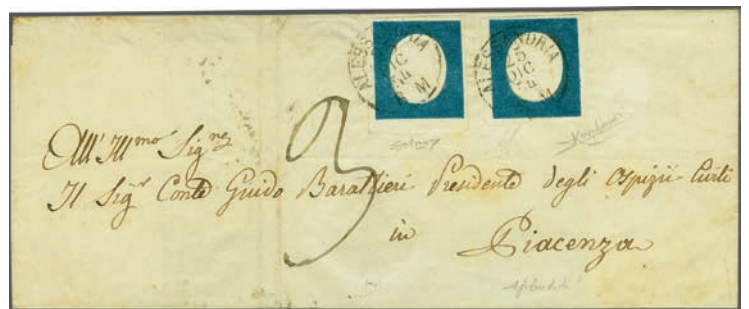 ALESSANDRIA
DIC
54
M
ALESSANDRIA
15
DIC
54
M
3
All' Ill.mo Sig.re
Il Sig.r Conte Guido Barattieri Presidente degli Ospizii Civili
in
Piacenza